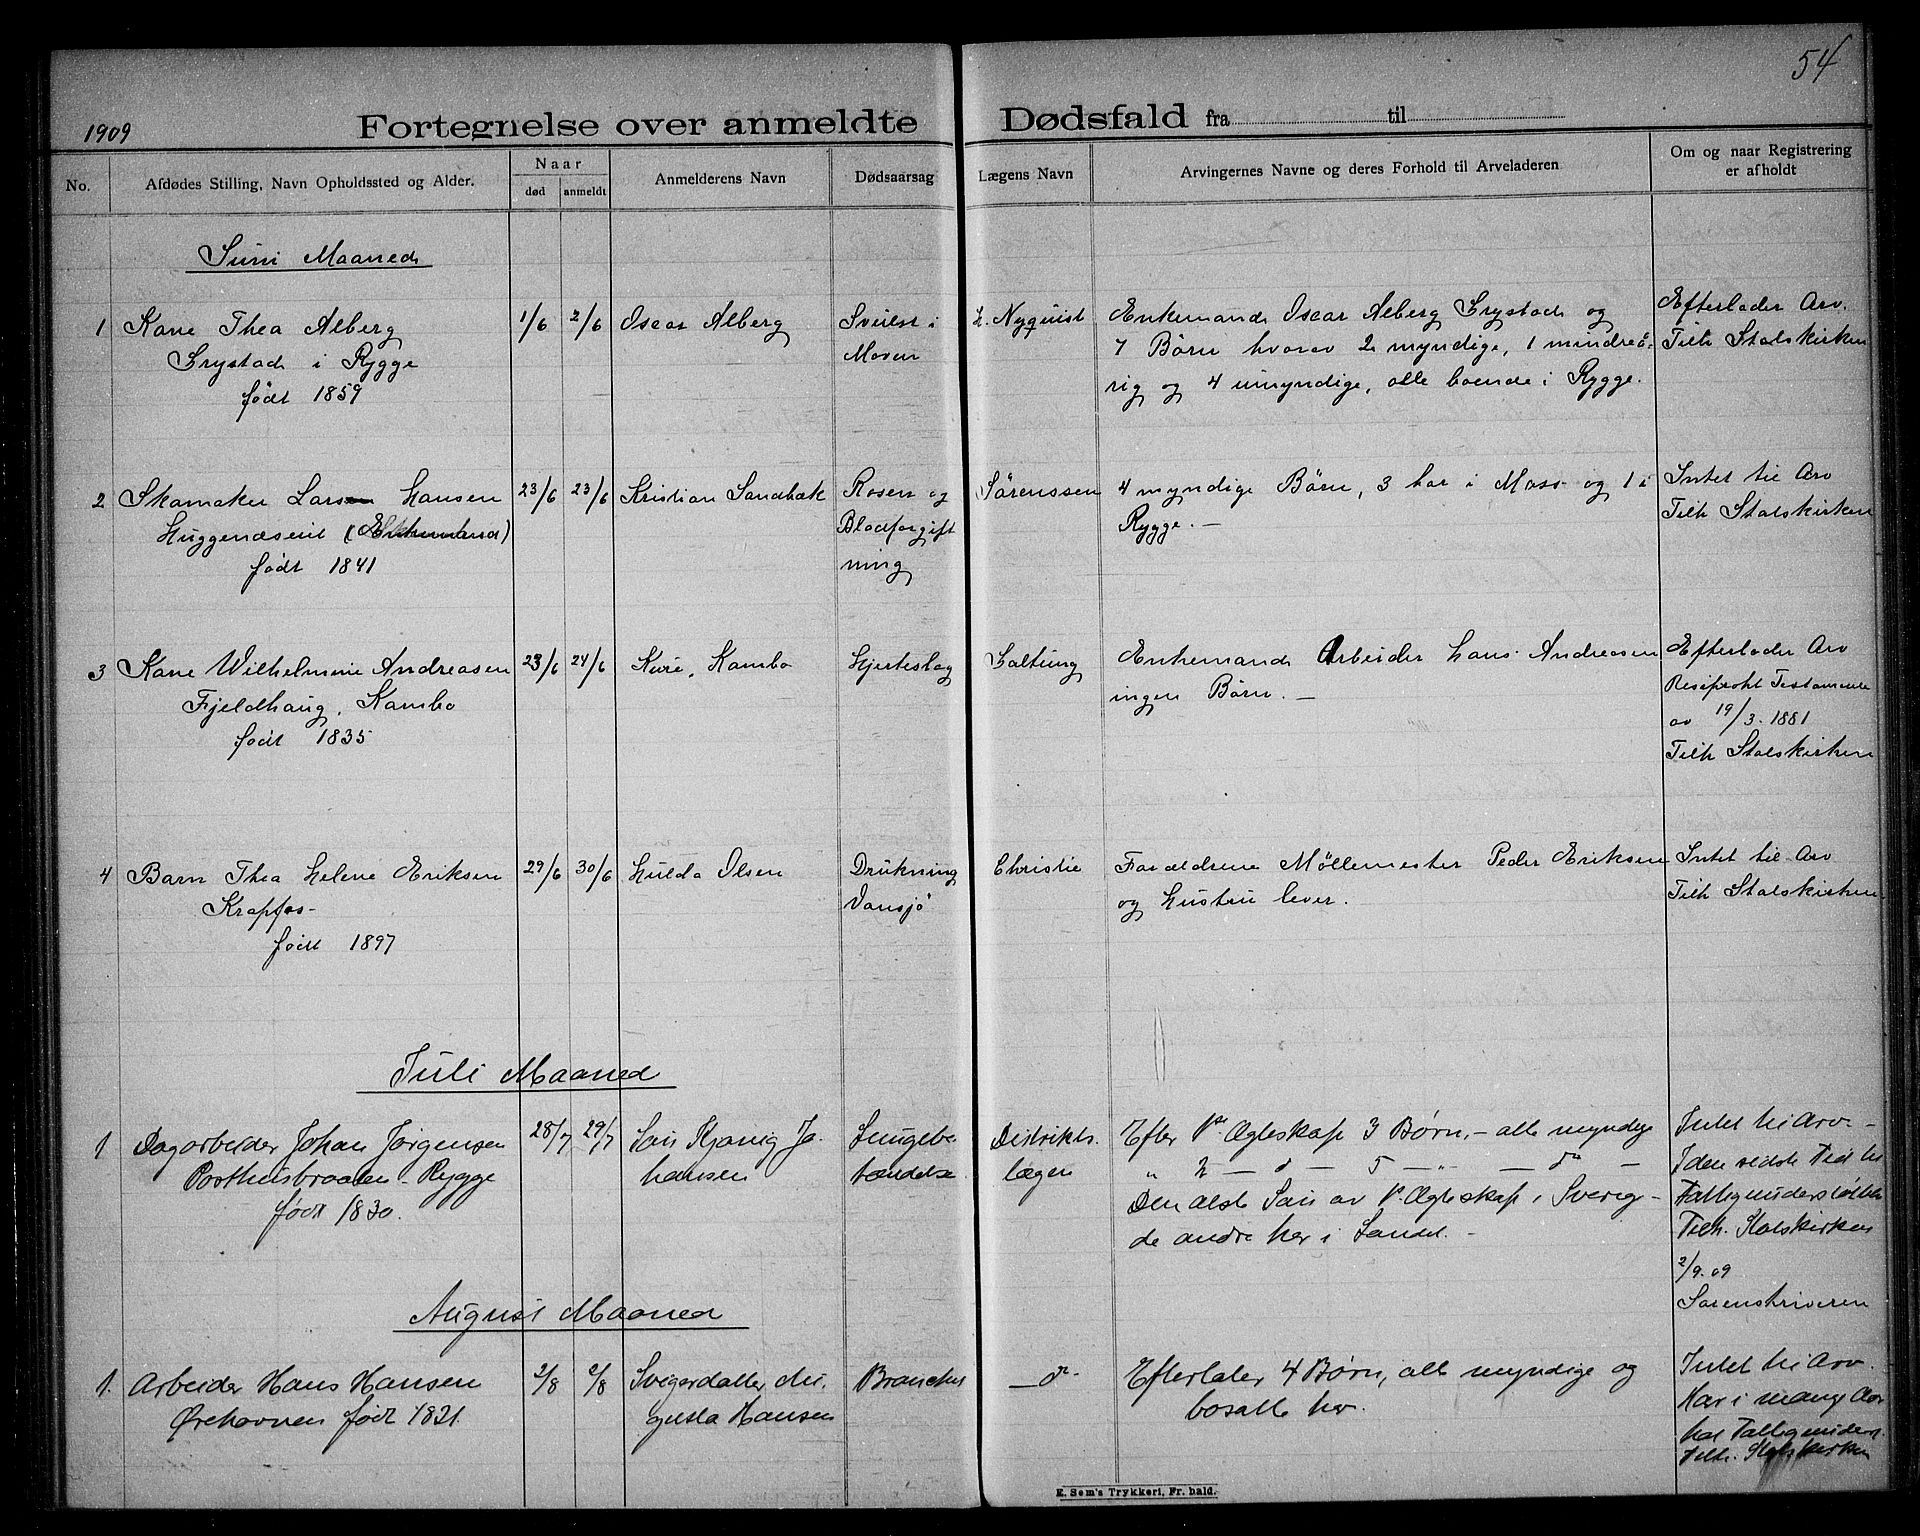 54
1909
Fortegnelse over anmeldte Dødsfald fra til
No.
Afdødes Stilling, Navn Opholdssted og Alder.
Naar
død
anmeldt
Anmelderens Navn
Dødsaarsag
Lægens Navn
Arvingernes Navne og deres Forhold til Arveladeren
Om og naar Registrering
er afholdt
Juni Maaned
1 Kone Thea Alberg
Grystad i Rygge
født 1859
1/6 2/6
Oscar Alberg
Svulst i
Maven
Nyquist
Enkemand Oscar Alberg Grystad og
7 Børn hvorav 2 myndige, 1 mindreå-
rig og 4 umyndige, alle boende i Rygge.
Efterlader Arv.
Tilh Statskirken
2 Skomaker Lars Hansen
Huggenæseie (Enkemand)
født 1841
23/6 23/6
Kristian Sandbæk
Rosen og
Blodforgift
ning
Sørenssen
4 myndige Børn, 3 bor i Moss og 1 i
Rygge. —
Intet til Arv
Tilh Statskirken
3 Kone Wilhelmine Andreasen
Fjeldhaug, Kambo
født 1835
23/6 24/6
Kure, Kambo
Hjerteslag
Saltung
Enkemand Arbeider Hans Andreasen
ingen Børn. —
Efterlader Arv
Resiprokt Testamente
av 19/3. 1881
Tilh Statskirken
4 Barn Thea Helene Eriksen
Krapfos-
født 1897
29/6 30/6
Hulda Olsen
Drukning
Vansjö
Christie
Forældrene Möllemester Peder Eriksen
og Hustru lever.
Intet til Arv
Tilh Statskirken
Juli Maaned
1 Dagarbeider Johan Jørgensen
Posthusbraaten - Rygge
født 1830.
28/7 29/7
Søn Kjønig Jo-
hansen
Lungebe
tændelse
Distrikts-
lægen
Efter 1ste Ægteskap 3 Børn, - alle myndige
" 2 — d — 5 — " — do —
Den ælste Søn av 1ste Ægteskap i Sverige -
de andre her i Landet. -
Intet til Arv -
I den sidste Tid
Fattigunderstøttet
Tilh. Statskirken
2/9. 09
Sorenskriveren
August Maaned
1. Arbeider Hans Hansen
Ørehavnen født 1821.
2/8 2/8
Svigerdatter Au-
gusta Hansen
Bronchit
— do -
Efterlater 4 Børn, alle myndige og
bosatte her.
Intet til Arv.
Har i mange Aar
hat Fattigunderst.
Tilh. Statskirken
E. Sem's Trykkeri, Fr.hald.